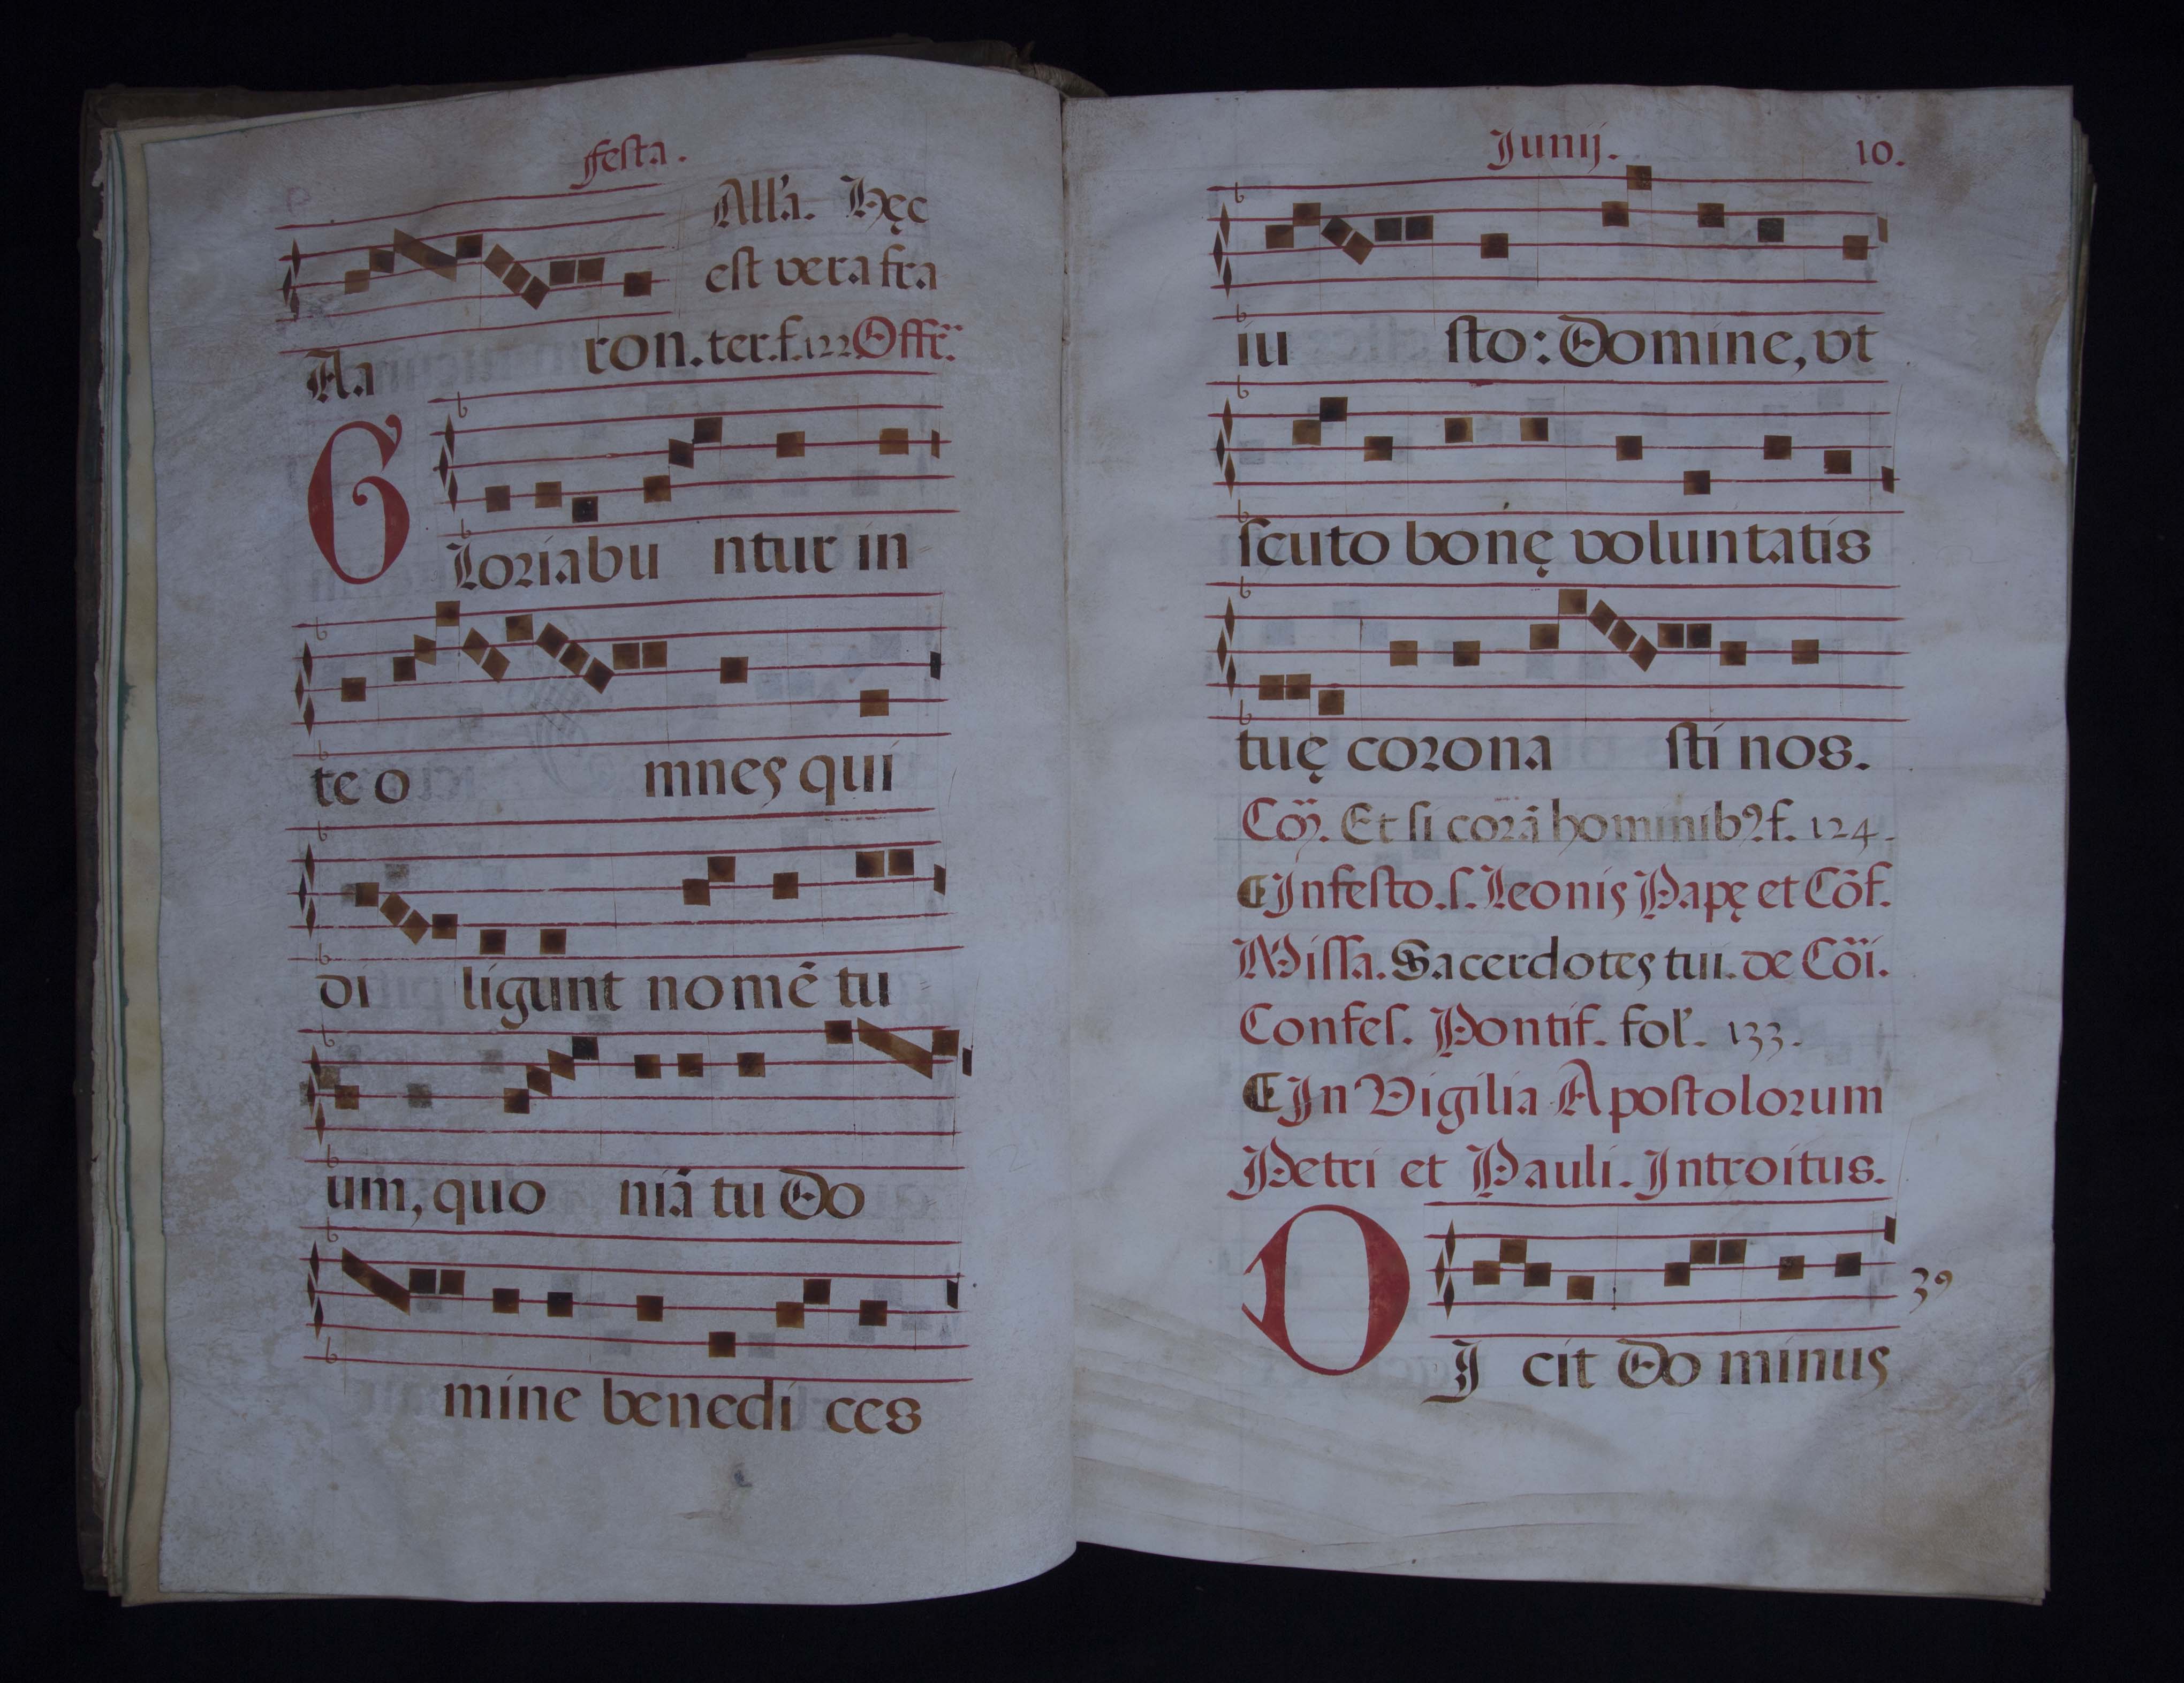 festa.
All'a. Hęc
est vera fra
Aa ron. ter. f. 122 Offr̃.
Gloriabu ntur in
te o mnes qui
di ligunt nomē tu
um, quo niā tu Do
mine benedi ces
Junij. 10.
iu sto: Domine, vt
scuto bonę voluntatis
tuę corona sti nos.
Cõ. Et si corā hominibꝰ. f. 124.
¶ In festo. s. Leonis Papę et Cōf.
Missa. Sacerdotes tui. de Cōi.
Confes. Pontif. fol'. 133.
¶ In Vigilia Apostolorum
Petri et Pauli. Introitus.
DI cit Do minus